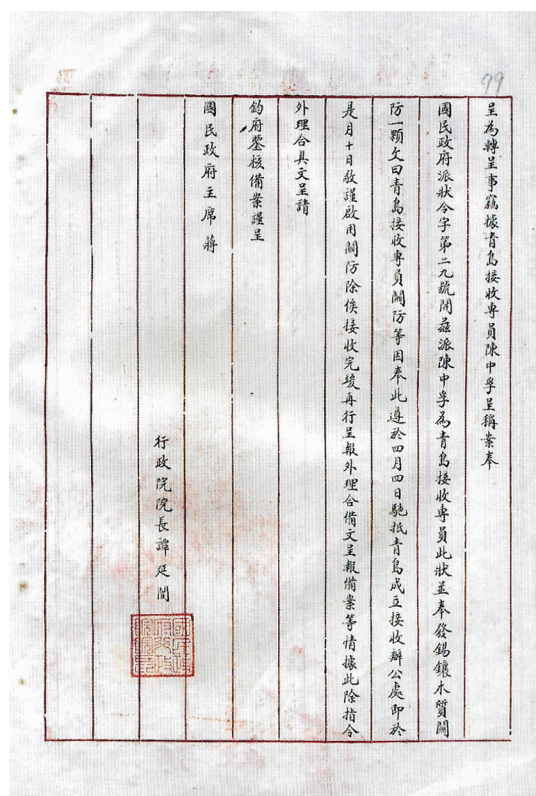 99
呈為轉呈事竊據青島接收專員陳中孚呈稱案奉
國民政府派狀令字第二九號開茲派陳中孚為青島接收專員此狀並奉發錫鑲木質關
防一顆文曰青島接收專員關防等因奉此遵於四月四日馳抵青島成立接收辦公處即於
是月十日敬謹啟用關防除俟接收完竣再行呈報外理合備文呈報備案等情據此除指令
外理合具文呈請
鈞府鑒核備案謹呈
國民政府主席蔣
行政院院長譚延闓